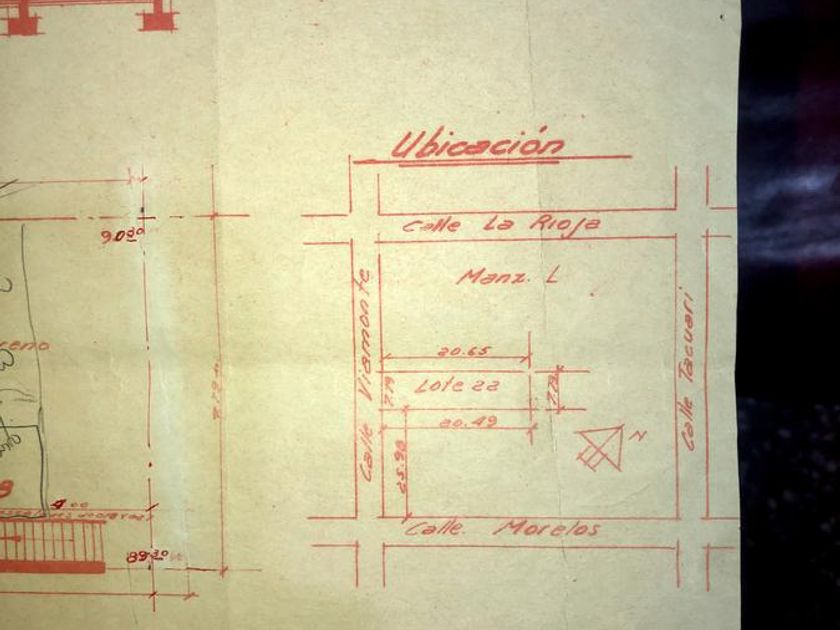 Ubicación
Calle La Rioja
90.30
Manz. L
Calle Viamonte
Calle Tacuari
20.65
Lote 22
7.79
7.79
20.49
25.90
N
4.00
Calle. Morelos
89.30